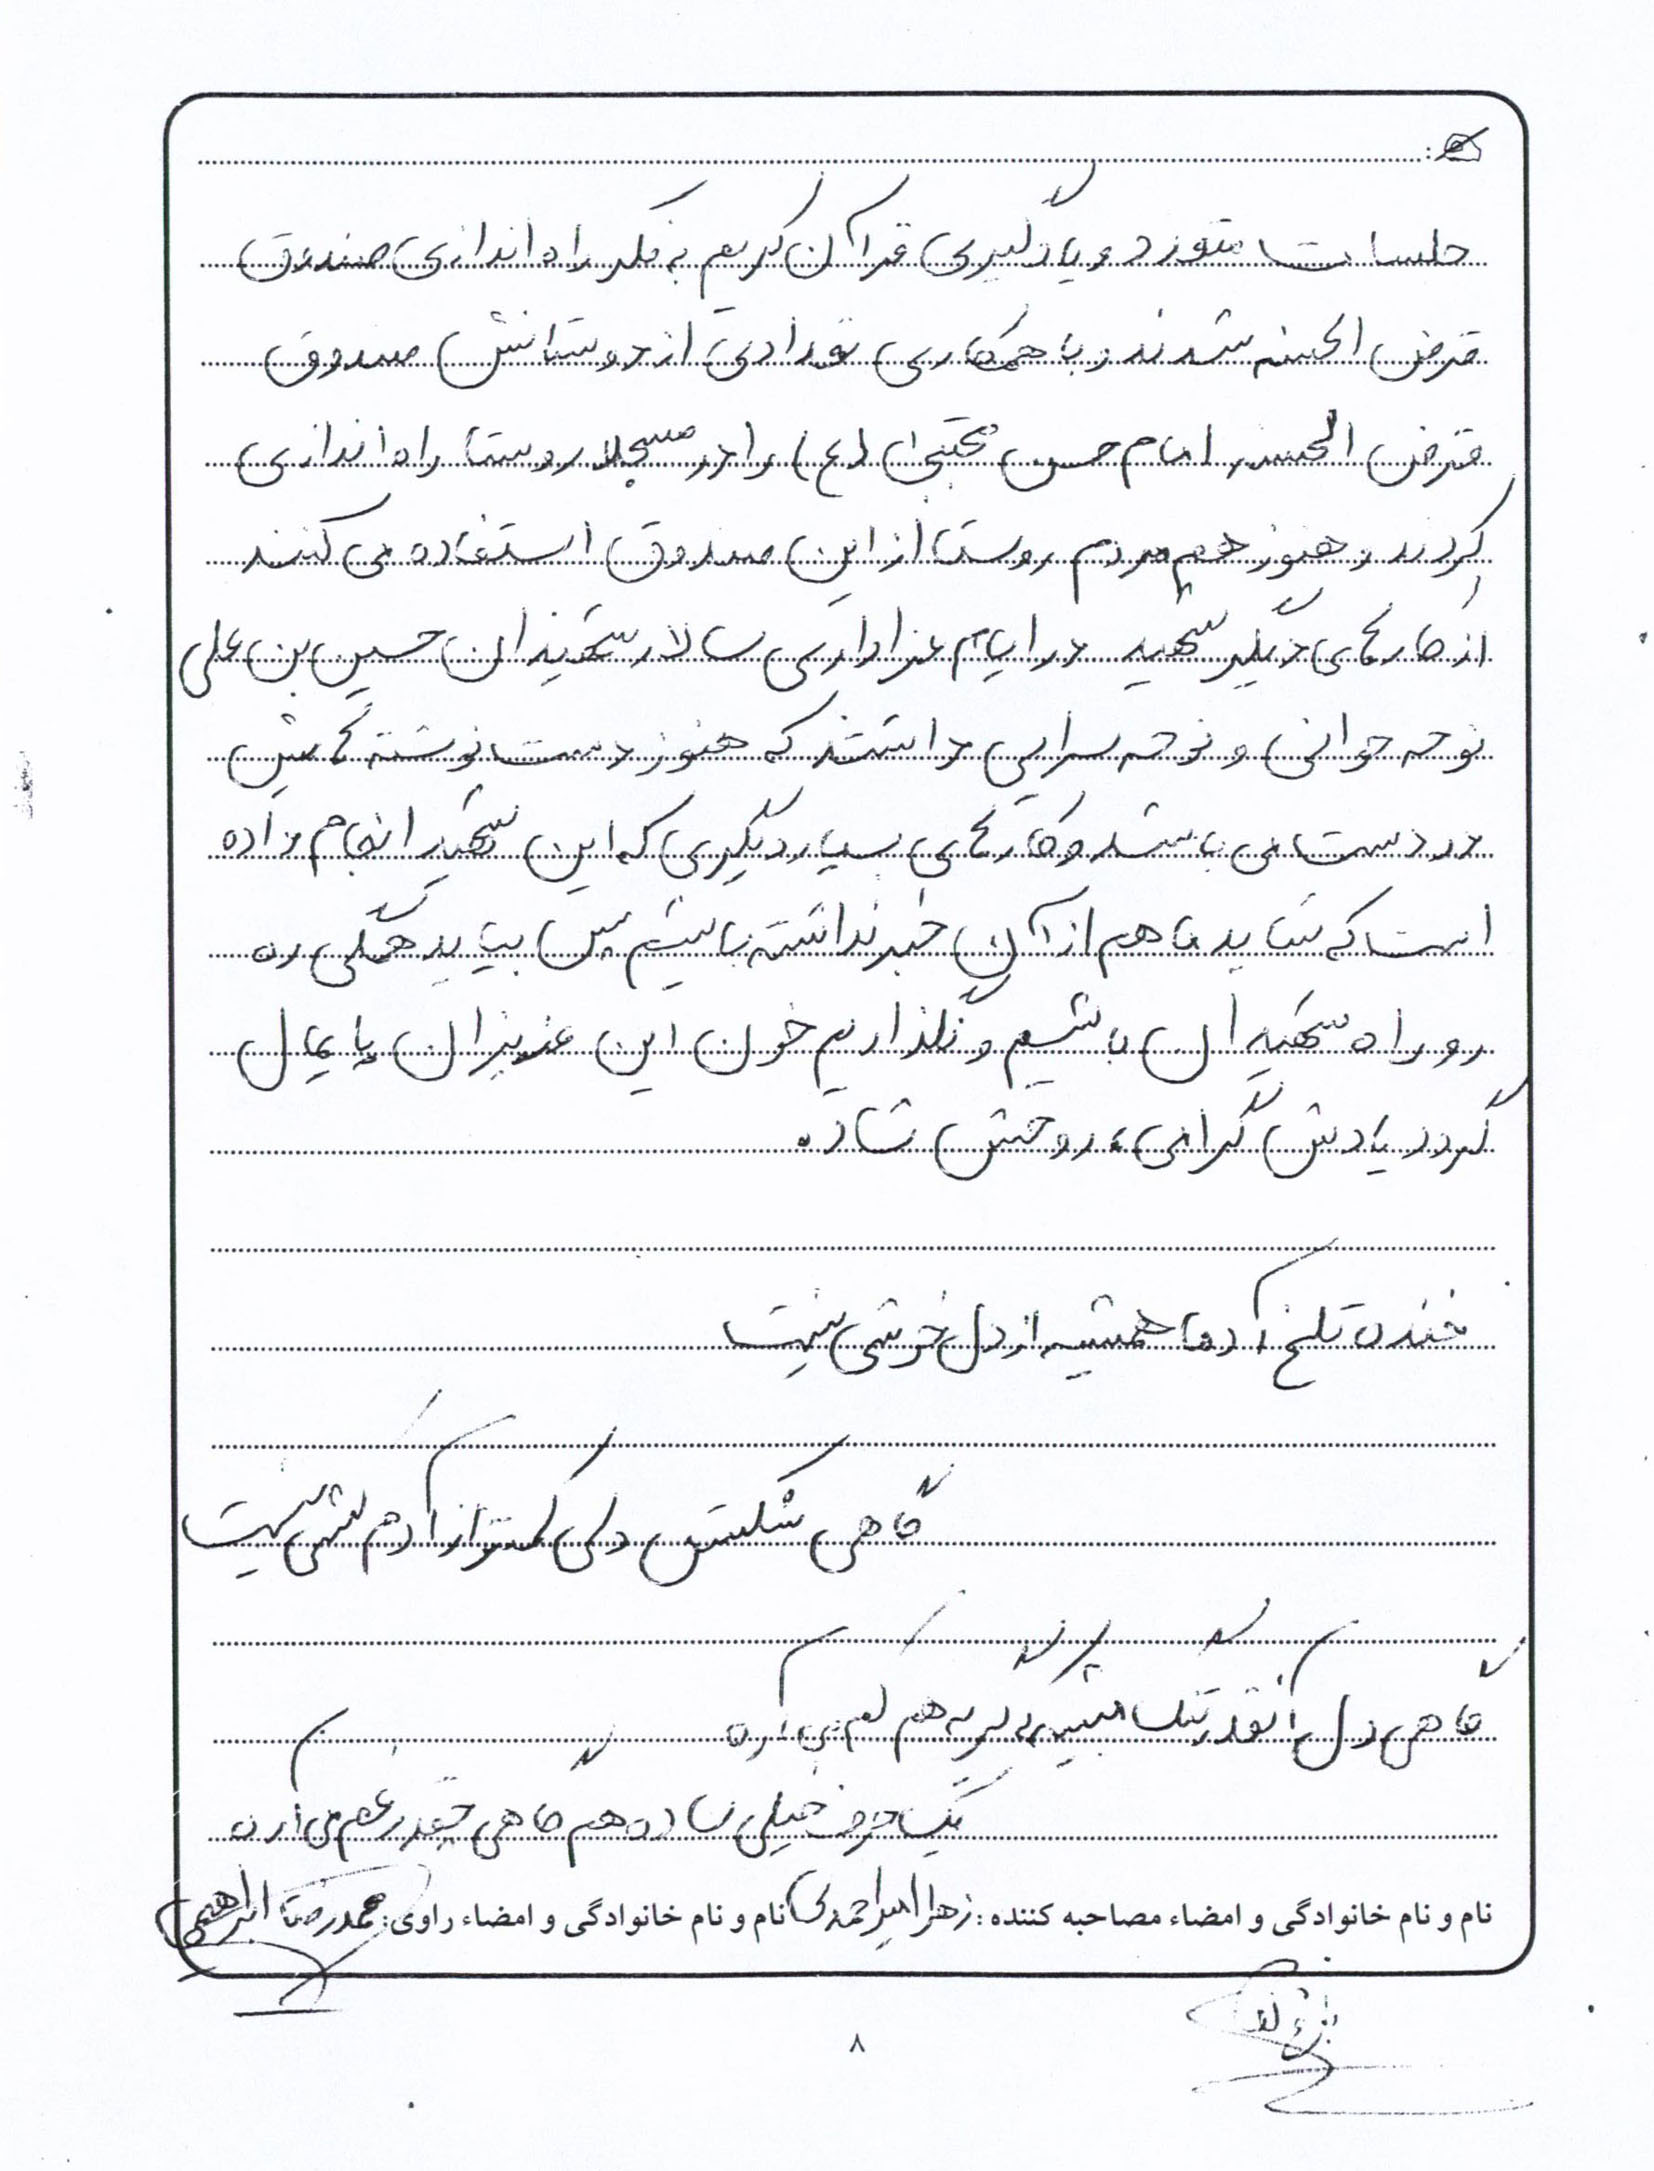 جلسات متعدد و یادگیری قرآن کریم به فکر راه اندازی صندوق
قرض الحسنه شدند و با همکاری تعدادی از دوستانش صندوق
قرض الحسنه امام حسن مجتبی (ع) را در مسجد روستا راه اندازی
کردند و هنوز هم مردم روستا از این صندوق استفاده می کنند
از کارهای دیگر شهید در ایام عزاداری سالار شهیدان حسین بن علی
نوحه خوانی و نوحه سرایی داشتند که هنوز دست نوشته هایش
در دست می باشد و کارهای بسیار دیگری که این شهید انجام داده
است که شاید ما هم از آن خبر نداشته باشیم پس بیاید همگی ره
رو راه شهیدان باشیم و نگذاریم خون این عزیزان پایمال
گردد یادش گرامی، روحش شاد.
خنده تلخ آدما همیشه از دل خوشی نیست
گاهی شکستن دلی کمتر از آدم کشی نیست
گاهی دل آنقدر تنگ میشه که گریه هم کم می آره
یک حرف خیلی ساده هم گاهی چقدر غم می آره
نام و نام خانوادگی و امضاء مصاحبه کننده: زهرا امیراحمدی نام و نام خانوادگی و امضاء راوی: محمدرضا ابراهیمی
۸